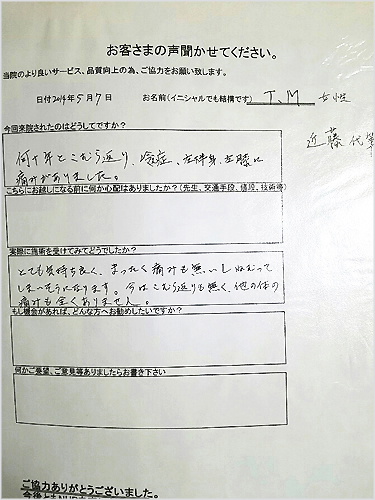 お客さまの声聞かせてください。
当院のより良いサービス、品質向上の為、ご協力をお願い致します。
日付2014年5月7日 お名前(イニシャルでも結構です) T.M 女性
近藤代筆
今回来院されたのはどうしてですか?
何十年とこむら返り、冷症、左半身、左膝に
痛みがありました。
こちらにお越しになる前に何か心配はありましたか?(先生、交通手段、値段、技術等)
実際に施術を受けてみてどうでしたか?
とても気持ち良く、まったく痛みも無いしねむって
しまいそうになります。今はこむら返りも無く、他の体の
痛みも全くありません。
もし機会があれば、どんな方へお勧めしたいですか?
何かご要望、ご意見等ありましたらお書き下さい
ご協力ありがとうございました。